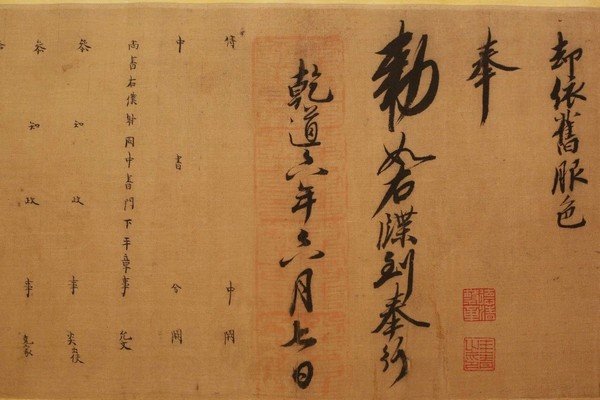 却依舊服色
奉
勅如右牒到奉行
乾道六年六月七日
侍中闕
中書令闕
尚書右僕射同中書門下平章事允文
叅知政事炎使
叅知政事克家